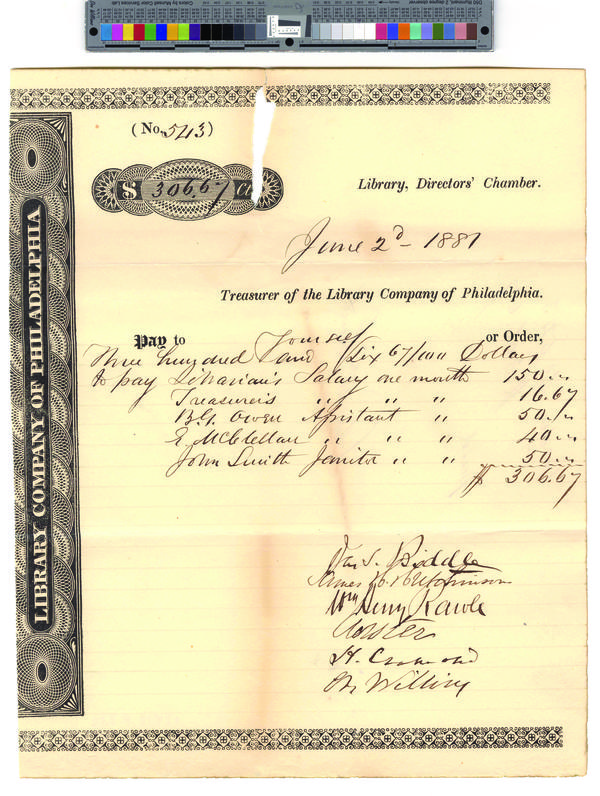 (No. 543)
$ 306.67 Cts
Library, Directors' Chamber.
June 2d - 1881
Treasurer of the Library Company of Philadelphia.
Pay to Yourself or Order,
Three hundred and Six 67/100 Dollars
to pay Librarian's Salary one month 150.
Treasurer's " " " 16.67
B.G. Owen Assistant " " 50.
E. McClellan " " " 40
John Smith Janitor " " 50
$ 306.67
Biddle
James H. Hutchinson
Wm Henry Rawle
H.
Willing
LIBRARY COMPANY OF PHILADELPHIA